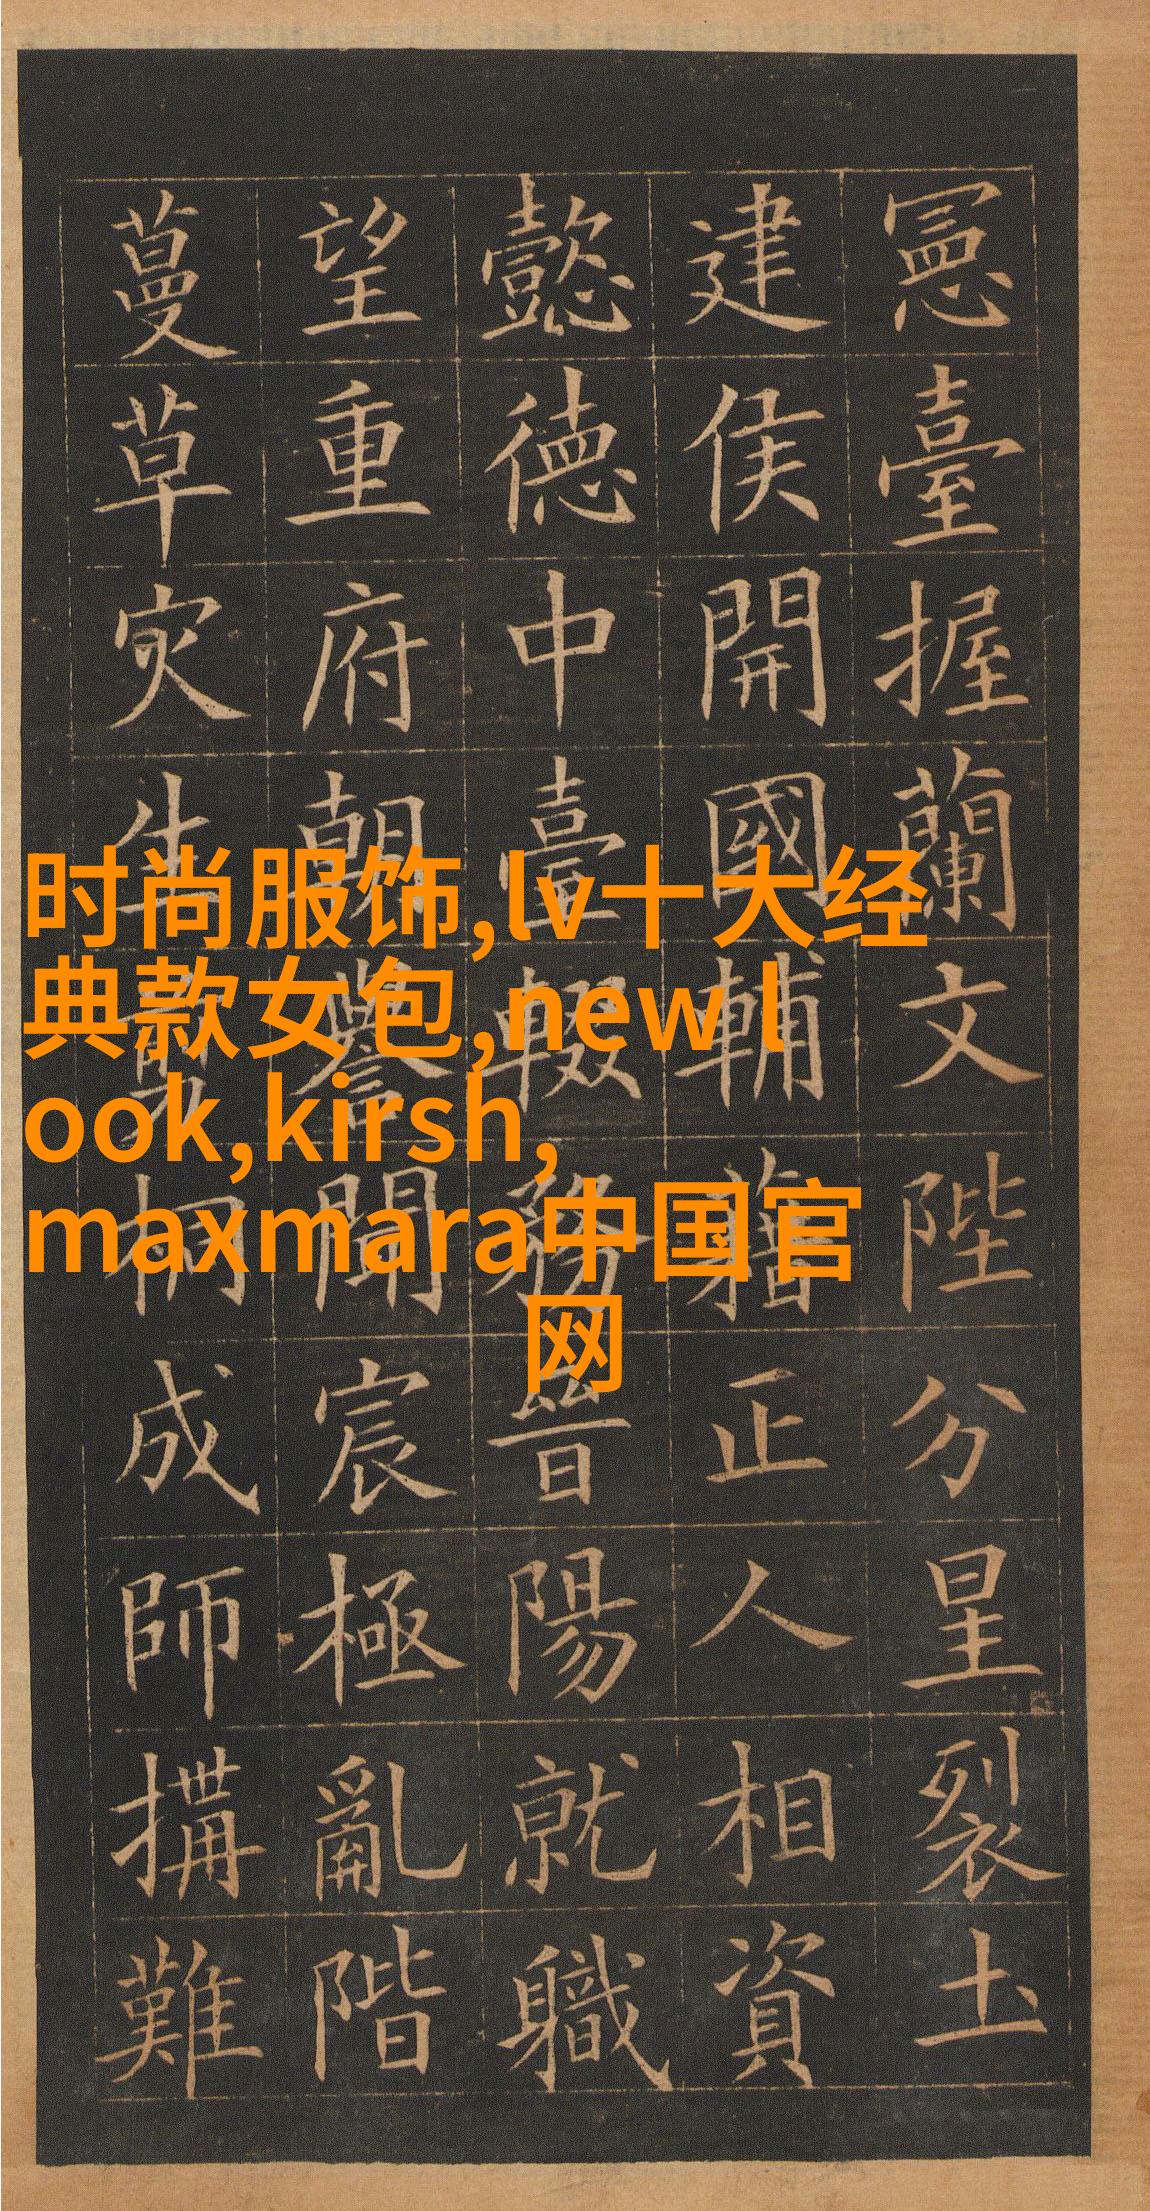 时尚服饰,lv十大经
典款女包,new l
ook,kirsh,
maxmara中国官
网
憲臺握蘭文陛分星裂土
建侯開國輔藉正人相資
懿德中臺輟務晉陽就職
望重府朝譽聞宸極亂階
蔓草灾生剪桐成師搆難